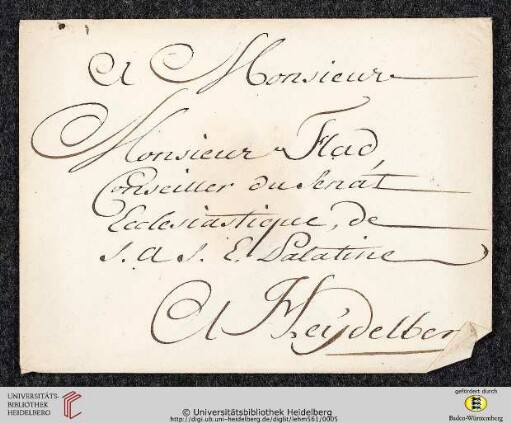 A Monsieur
Monsieur Flad,
Conseiller du Senat
Ecclesiastique, de
S. A S. E. Palatine
A Heÿdelber
UNIVERSITÄTS-
BIBLIOTHEK
HEIDELBERG
© Universitätsbibliothek Heidelberg
http://digi.ub.uni-heidelberg.de/diglit/lehm561/0005
gefördert durch
Baden-Württemberg